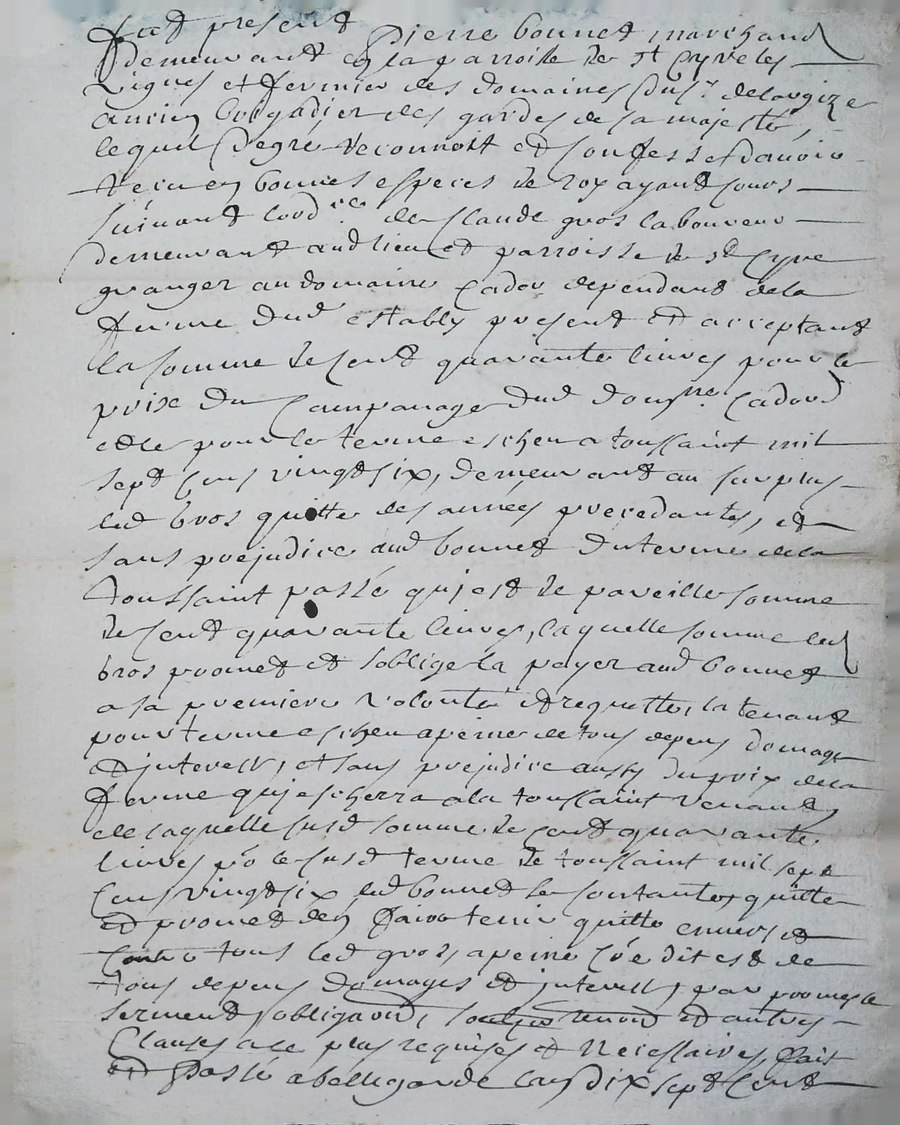 fut present Pierre bonnet marchand
demeurant en la parroisse de st Cyre les
Vignes et fermier des domaines du sr. delavgize
ancien brigadier des gardes de sa majesté,
lequel degré reconnoit et confesse davoir
receu en bonnes especes de roy ayant cours
suivant lord.ce de Claude gros laboureur
demeurant aud lieu et parroisse de st Cyre
granger au domaine Cador dependant de la
ferme dud estably present et acceptant
la somme de cent quarante livres pour le
prix du Campanage dud dom.ne Cador
et ce pour le terme escheu a toussaint mil
sept cens vingt six, demeurant au surplus
led bros quitte des années precedantes, et
sans prejudice aud bonnet du terme de la
toussaint passé qui est de pareille somme
de cent quarante livres, laquelle somme led
bros promet et soblige la payer aud bonnet
a sa premiere volonté et requette, la tenant
pour terme escheu a peine de tous depens domage
et interest, et sans prejudice aussy du prix de la
ferme qui escherra a la toussaint venant,
de laquelle susd somme de cent quarante
livres po le susd terme de toussaint mil sept
cens vingt six led bonnet se contante quitte
et promet den faire tenir quitte envers et
contre tous led gros, a peine co'e dit est de
tous depens domages et interest, par promesse
serment, obligaon, renon et autres
Clauses a ce plus requises et necessaires, fait
et Passé a bellegarde lan dix sept cent